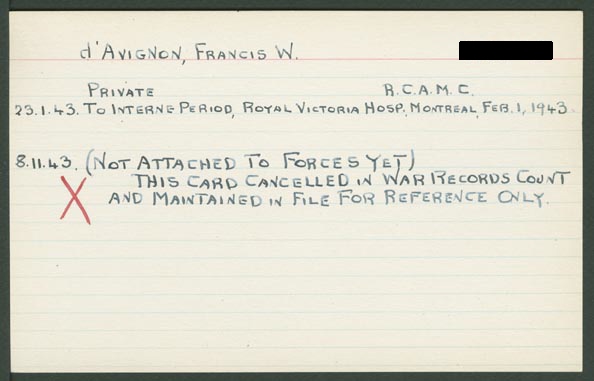 d'Avignon, Francis W.
Private R.C.A.M.C.
23.1.43. To Interne Period, Royal Victoria Hosp. Montreal, Feb. 1, 1943.
8.11.43. (Not Attached To Forces Yet)
This Card Cancelled in War Records Count
and Maintained in File For Reference Only.